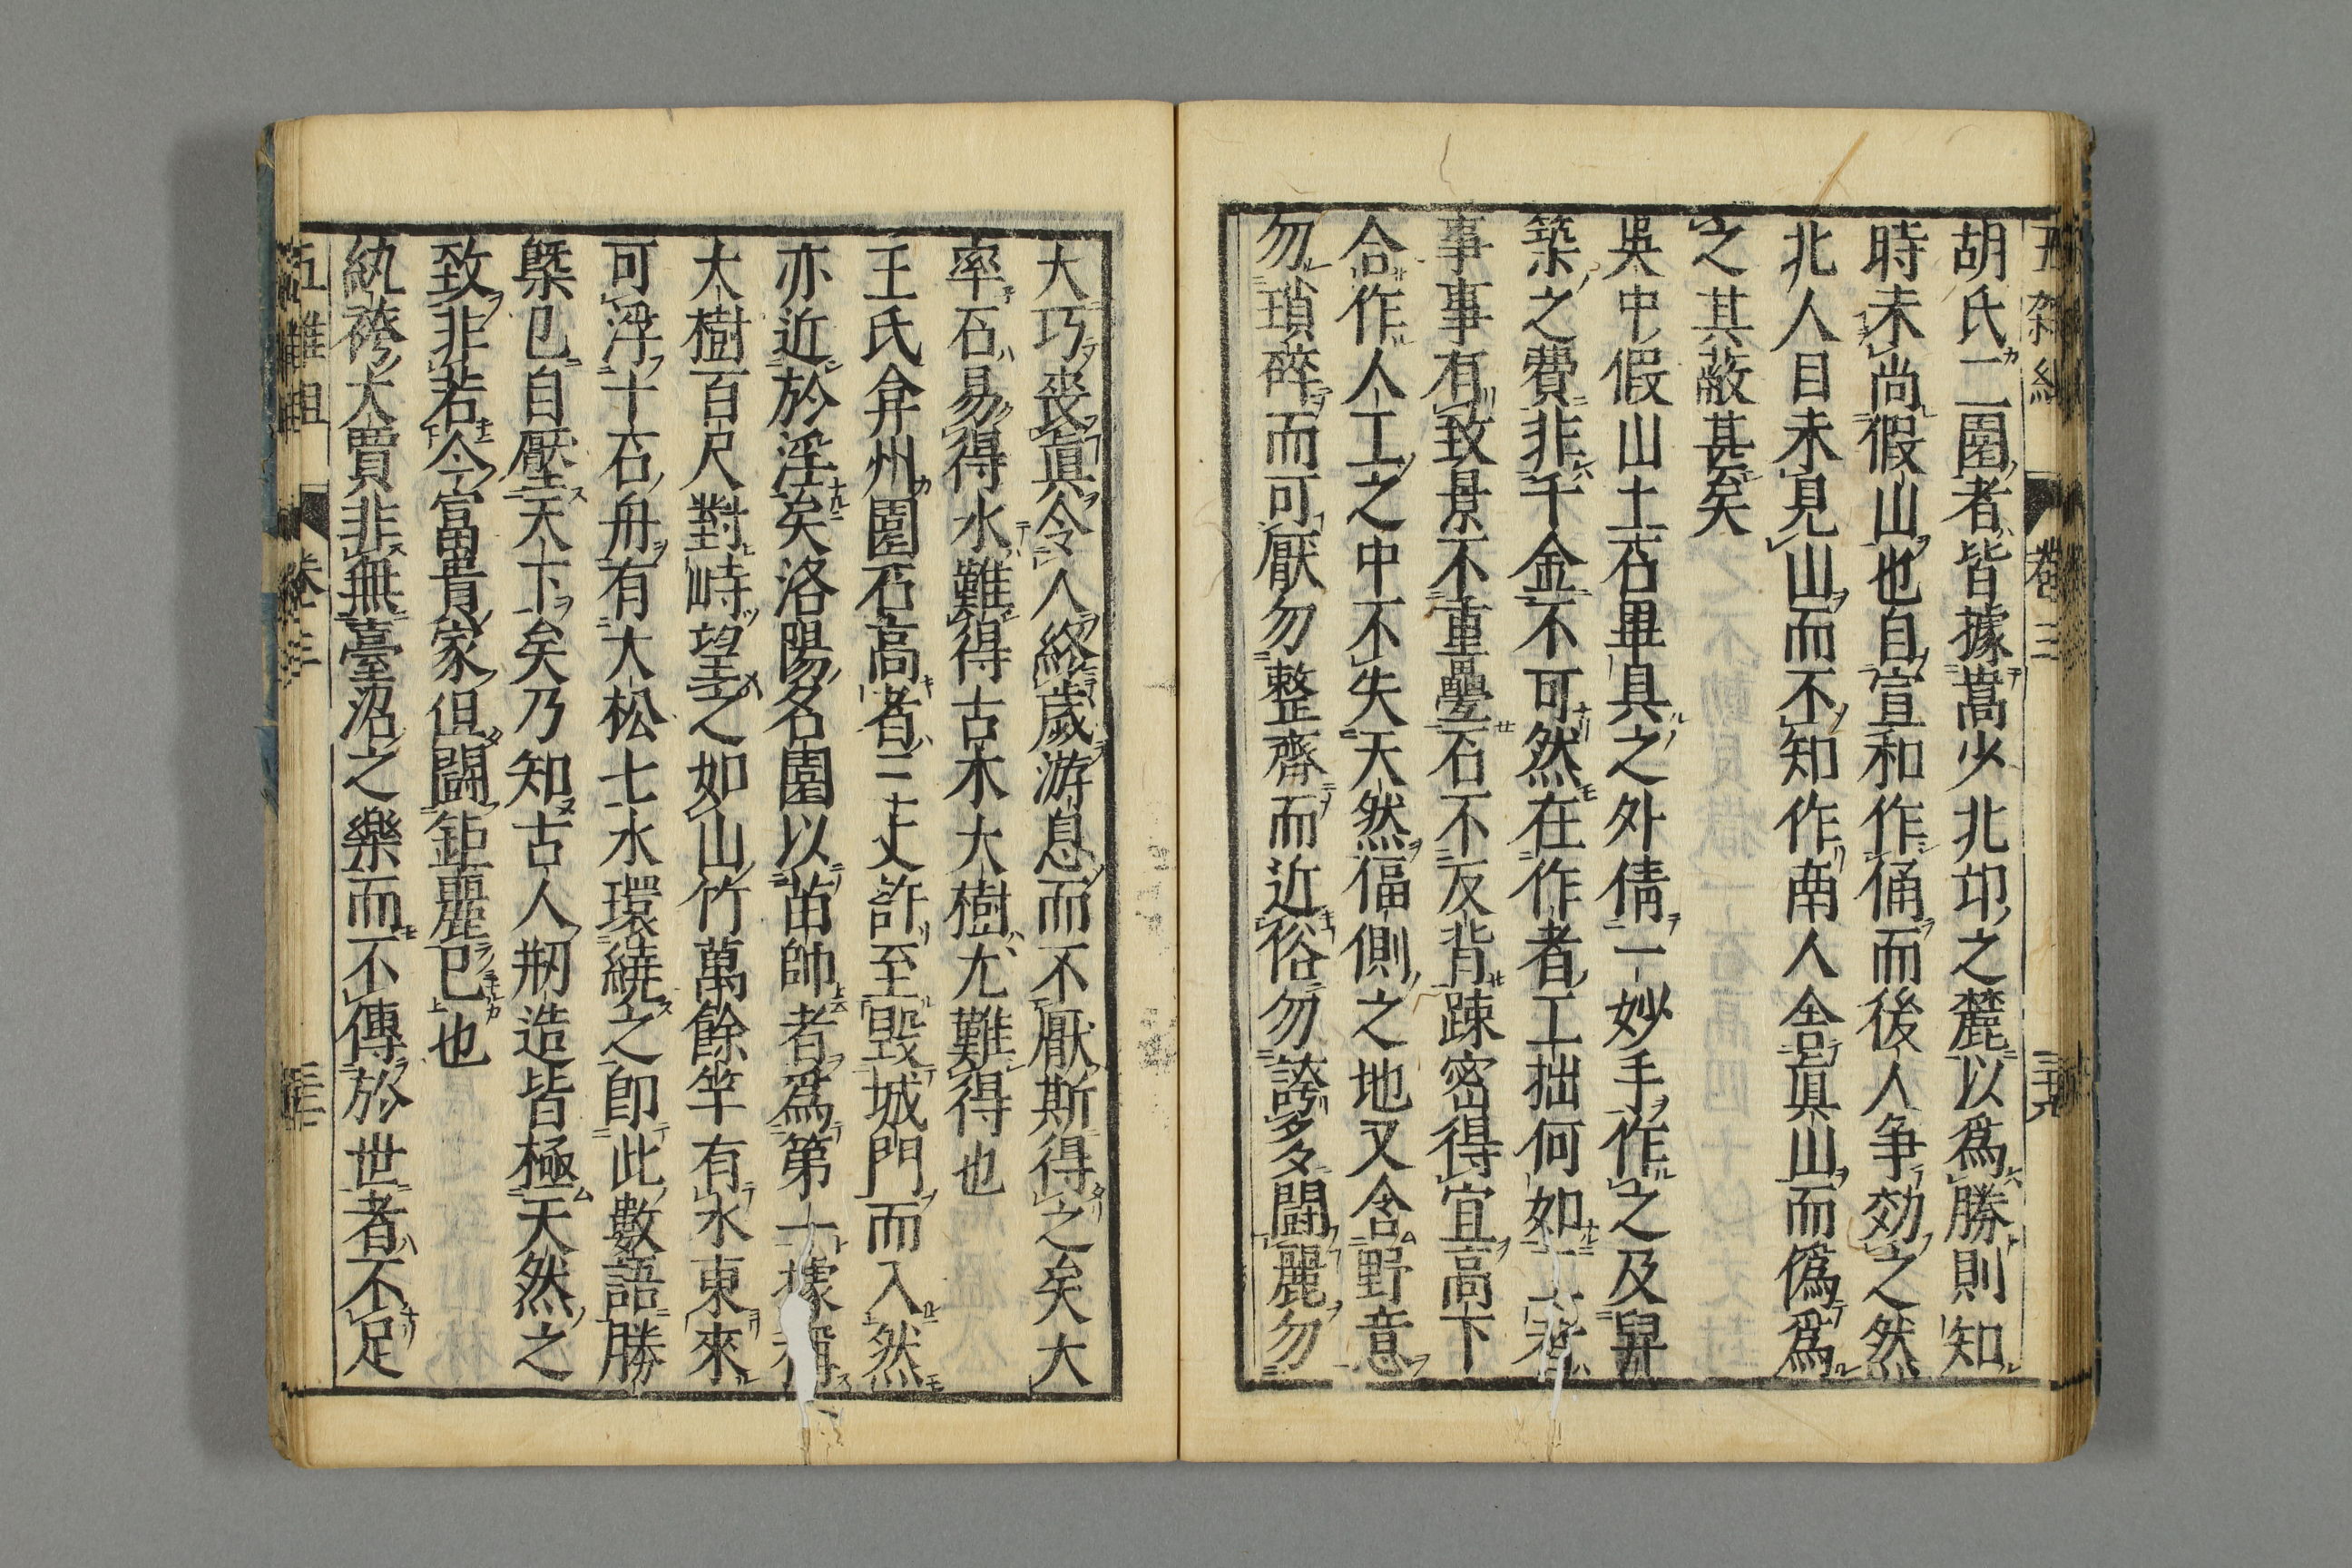 五雜組 卷三
胡氏二園者皆據嵩少北卭之麓以爲勝則知
時未尚假山也自宣和作俑而後人争効之然
北人目未見山而不知作南人舍眞山而僞爲
之其蔽甚矣
吳中假山土石畢具之外倩一妙手作之及舁
築之費非千金不可然在作者工拙何如工者
事事有致景不重疊石不反背疎密得宜高下
合作人工之中不失天然偪側之地又含野意
勿瑣碎而可厭勿整齊而近俗勿誇多鬪麗勿
大巧喪眞令人終歳游息而不厭斯得之矣大
率石易得水難得古木大樹尤難得也
王氏弇州園石高者三丈許至毀城門而入然
亦近於淫矣洛陽名園以苗帥者爲第一據稱
大樹百尺對峙望之如山竹萬餘竿有水東來
可浮十石舟有大松七水環繞之卽此數語勝
槩已自壓天下矣乃知古人剏造皆極天然之
致非若今富貴家但鬪鉅麗已也
紈袴大賈非無臺沼之樂而不傳於世者不足
五雜組 卷三